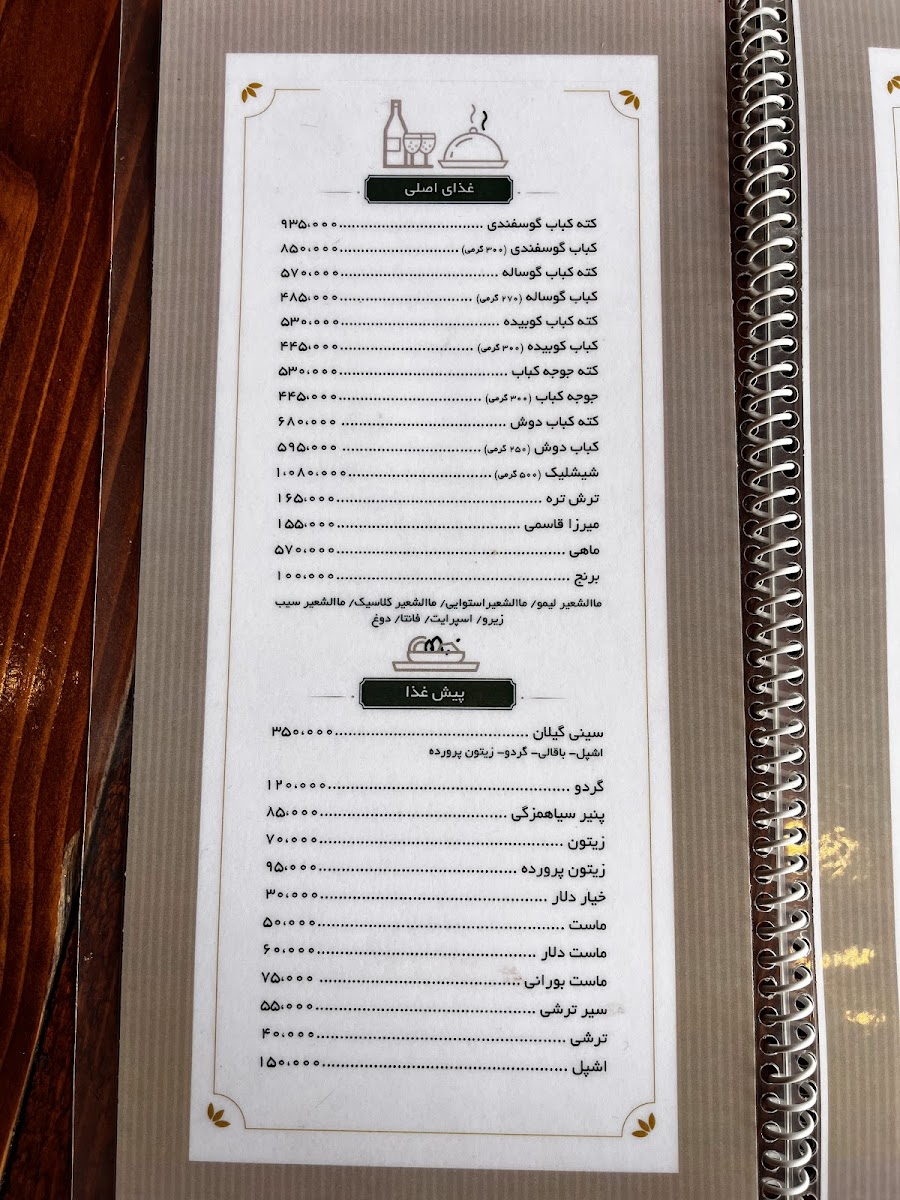 غذای اصلی
کته کباب گوسفندی ................................۹۳۵،۰۰۰
کباب گوسفندی (۳۰۰ گرمی) .........................۸۵۰،۰۰۰
کته کباب گوساله ...................................۵۷۰،۰۰۰
کباب گوساله (۲۷۰ گرمی) .............................۴۸۵،۰۰۰
کته کباب کوبیده ...................................۵۳۰،۰۰۰
کباب کوبیده (۳۰۰ گرمی) .............................۴۴۵،۰۰۰
کته جوجه کباب .....................................۵۳۰،۰۰۰
جوجه کباب (۳۰۰ گرمی) ...............................۴۴۵،۰۰۰
کته کباب دوش .....................................۶۸۰،۰۰۰
کباب دوش (۲۵۰ گرمی) ...............................۵۹۵،۰۰۰
شیشلیک (۵۰۰ گرمی) ...............................۱،۰۸۰،۰۰۰
ترش تره .............................................۱۶۵،۰۰۰
میرزا قاسمی ........................................۱۵۵،۰۰۰
ماهی .................................................۵۷۰،۰۰۰
برنج ..................................................۱۰۰،۰۰۰
ماالشعیر لیمو/ ماالشعیراستوایی/ ماالشعیر کلاسیک/ ماالشعیر سیب
زیرو/ اسپرایت/ فانتا/ دوغ
پیش غذا
سینی گیلان ..........................................۳۵۰،۰۰۰
اشپل- باقالی- گردو- زیتون پرورده
گردو ...................................................۱۲۰،۰۰۰
پنیر سیاهمزگی .......................................۸۵،۰۰۰
زیتون ..................................................۷۰،۰۰۰
زیتون پرورده .........................................۹۵،۰۰۰
خیار دلار ..............................................۳۰،۰۰۰
ماست ..................................................۵۰،۰۰۰
ماست دلار ............................................۶۰،۰۰۰
ماست بورانی .........................................۷۵،۰۰۰
سیر ترشی ............................................۵۵،۰۰۰
ترشی ..................................................۴۰،۰۰۰
اشپل ..................................................۱۵۰،۰۰۰